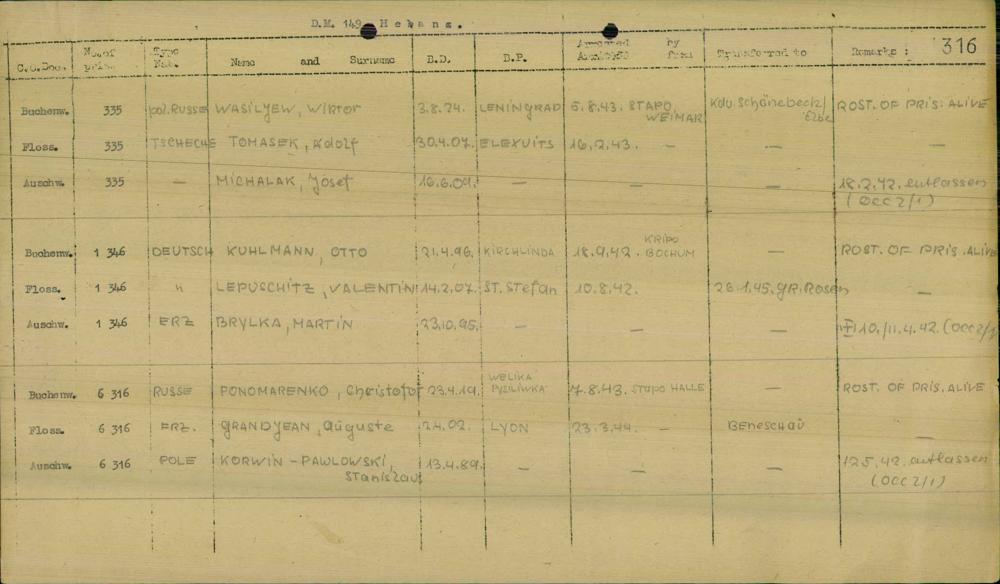 D.M. 149 Hebanz.
316
C.C.Doc. No. of pris. Type Nat. Name and Surname B.D. B.P. Arrested by from Transferred to Remarks :
Buchenw. 335 pol. RUSSE WASILJEW, Wiktor 3.8.24. LENINGRAD 6.8.43. STAPO WEIMAR Kdo. Schönebeck/Elbe ROST. OF PRIS. ALIVE
Floss. 335 TSCHECHE TOMASEK, Adolf 30.4.07. ELEXUITS 16.2.43. — — —
Auschw. 335 — MICHALAK, Josef 16.6.09. — — — 18.2.42. entlassen
(OCC 2/1)
Buchenw. 1 346 DEUTSCH KUHLMANN, OTTO 21.4.96. KIRCHLINDA 18.9.42. KRIPO BOCHUM — ROST. OF PRIS. ALIVE
Floss. 1 346 " LEPUSCHITZ, VALENTIN 14.2.07. ST. Stefan 10.8.42. 26.1.45. GR. Rosen —
Auschw. 1 346 ERZ BRYLKA, MARTIN 23.10.95. — — — 10./11.4.42. (OCC 2/1)
Buchenw. 6 316 RUSSE PONOMARENKO, Christofor 23.4.19. WELIKA 7.8.43. STAPO HALLE — ROST. OF PRIS. ALIVE
Floss. 6 316 FRZ. GRANDJEAN, Auguste 2.4.02. LYON 23.3.44. — BENESCHAU —
Auschw. 6 316 POLE KORWIN-PAWLOWSKI, 13.4.89. — — — 12.5.42. entlassen
Stanislaus (OCC 2/1)